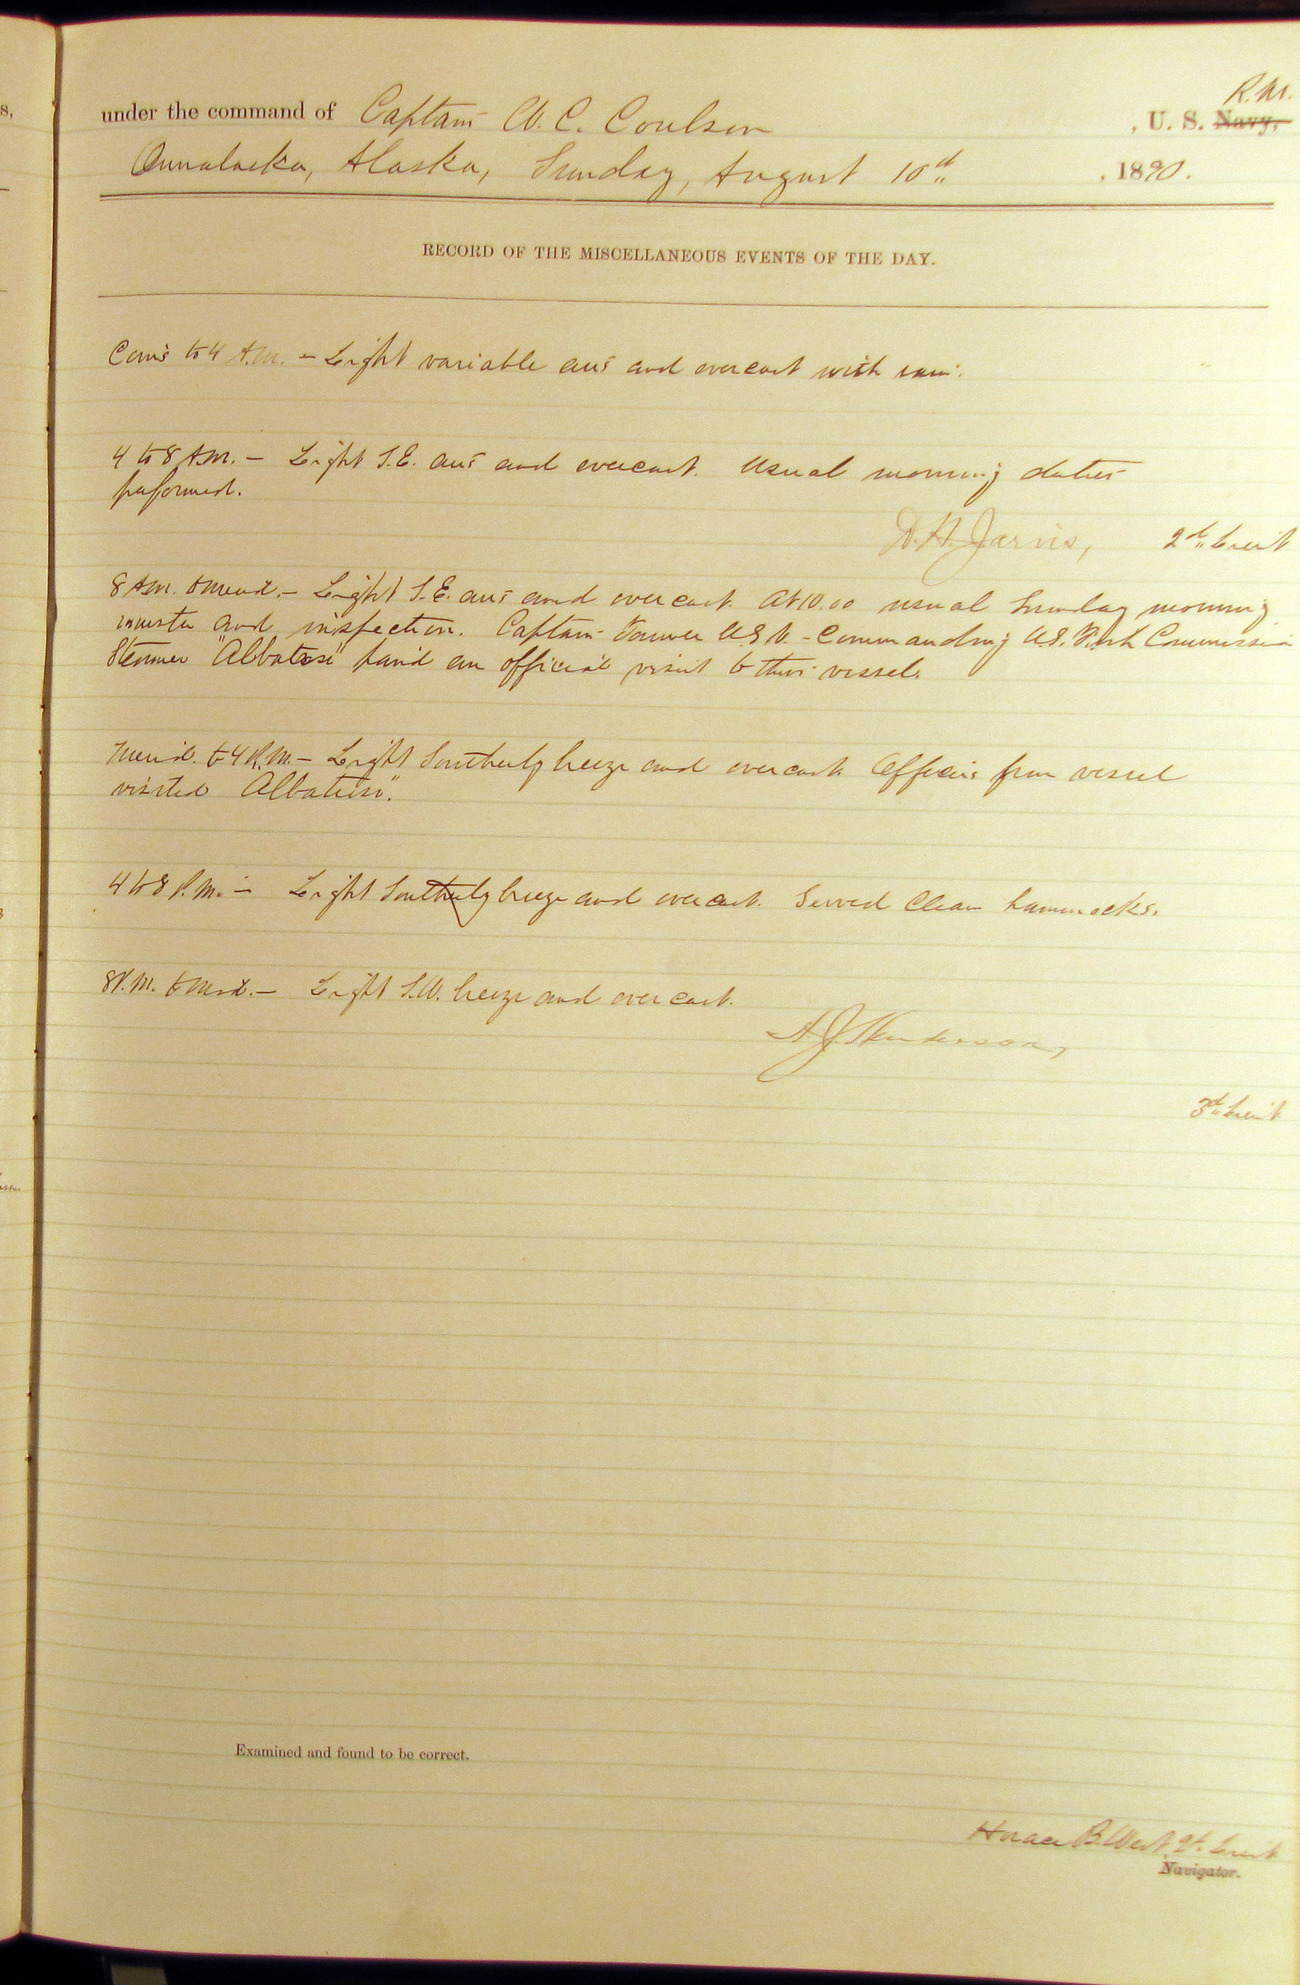 R.M.
under the command of Captain W. C. Coulson , U. S. Navy,
Ounalaska, Alaska, Sunday, August 10th , 1890.
RECORD OF THE MISCELLANEOUS EVENTS OF THE DAY.
Com's to 4 A.M. – Light variable airs and overcast with rain.
4 to 8 A.M. – Light S.E. airs and overcast. Usual morning duties
performed.
D. H. Jarvis, 2d Lieut
8 A.M. to Merid. – Light S.E. airs and overcast. At 10.00 usual Sunday morning
muster and inspection. Captain Tanner U.S.N. – Commanding U.S. Fish Commission
Steamer "Albatross" paid an official visit to this vessel.
Merid. to 4 P.M. – Light Southerly breeze and overcast. Officers from vessel
visited Albatross".
4 to 8 P.M. – Light Southerly breeze and overcast. Served clean hammocks.
8 P.M. to Mid. – Light S.W. breeze and overcast.
A J Henderson,
3d Lieut
Examined and found to be correct.
Horace B. West, Lieut
Navigator.